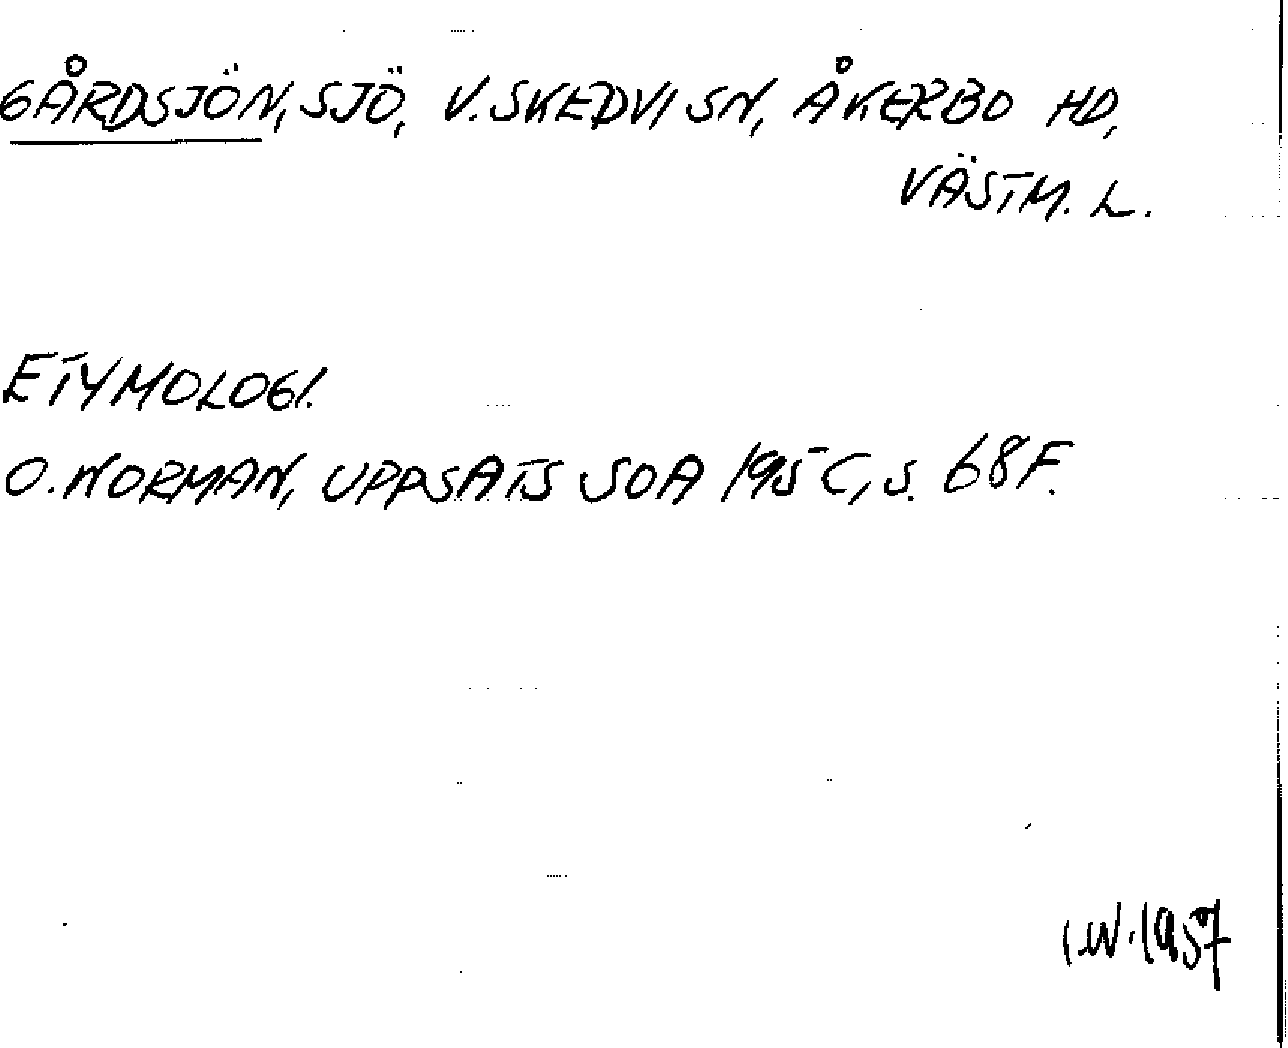 GÅRDSJÖN, SJÖ, V. SKEDVI SN, ÅKERBO HD,
VÄSTM. L.
ETYMOLOGI.
O. NORMAN, UPPSATS SOA 195 C, S. 68 F.
I.W. 1957